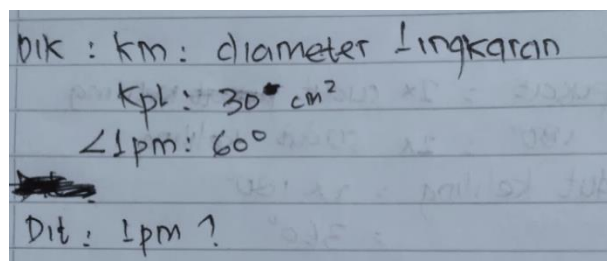 DIK : KM : diameter lingkaran
KPL : 30 cm²
∠LPM : 60°
Dit : LPM ?